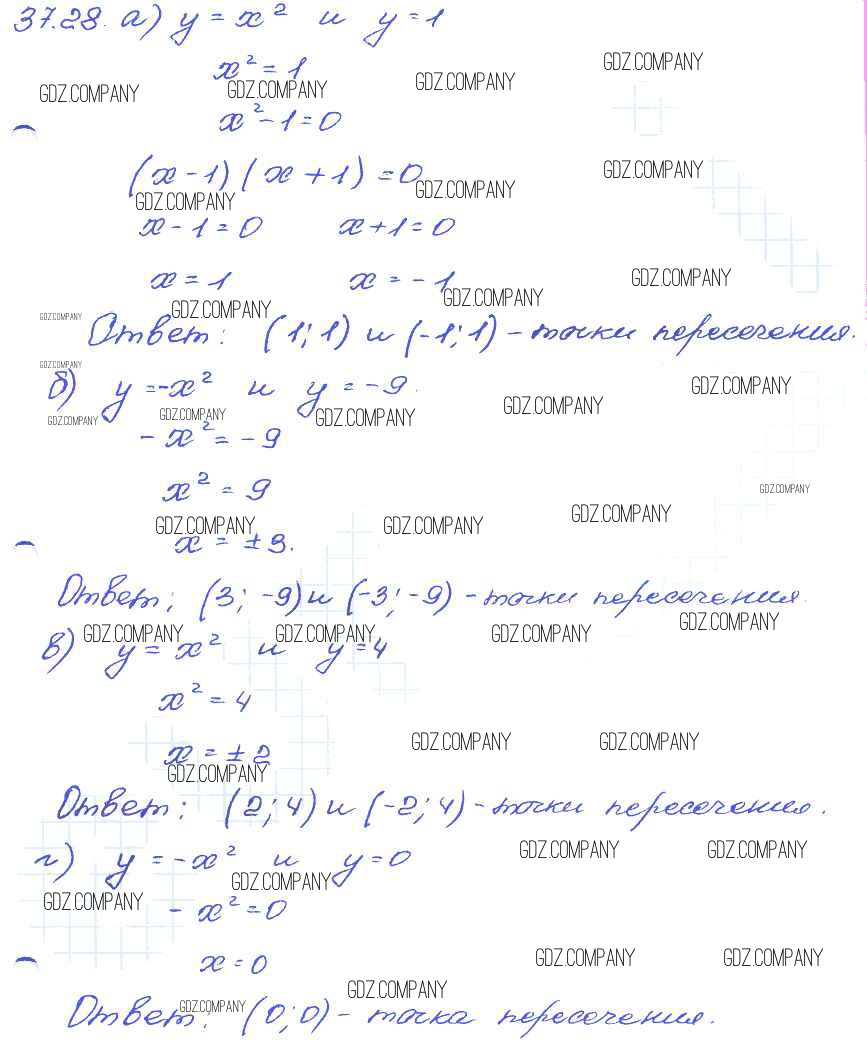 37.28. а) y = x² и y = 1
x² = 1
GDZ.COMPANY
GDZ.COMPANY GDZ.COMPANY GDZ.COMPANY
x² - 1 = 0
(x - 1) (x + 1) = 0
GDZ.COMPANY
GDZ.COMPANY GDZ.COMPANY
x - 1 = 0 x + 1 = 0
x = 1 x = - 1
GDZ.COMPANY
GDZ.COMPANY GDZ.COMPANY GDZ.COMPANY
Ответ: (1; 1) и (-1; 1) - точки пересечения.
GDZ.COMPANY
б) y = -x² и y = -9.
GDZ.COMPANY
GDZ.COMPANY GDZ.COMPANY GDZ.COMPANY GDZ.COMPANY
- x² = - 9
x² = 9
GDZ.COMPANY
GDZ.COMPANY GDZ.COMPANY GDZ.COMPANY
x = ± 3.
Ответ: (3; -9) и (-3; -9) - точки пересечения.
GDZ.COMPANY GDZ.COMPANY GDZ.COMPANY GDZ.COMPANY
в) y = x² и y = 4
x² = 4
x = ± 2
GDZ.COMPANY GDZ.COMPANY
GDZ.COMPANY
Ответ: (2; 4) и (-2; 4) - точки пересечения.
г) y = - x² и y = 0
GDZ.COMPANY GDZ.COMPANY
GDZ.COMPANY GDZ.COMPANY
- x² = 0
x = 0
GDZ.COMPANY GDZ.COMPANY
GDZ.COMPANY GDZ.COMPANY
Ответ: (0; 0) - точка пересечения.